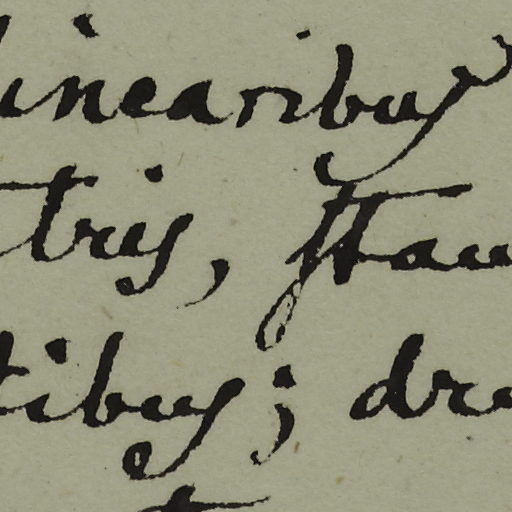 linearibus
tris, stau
tibus; dru